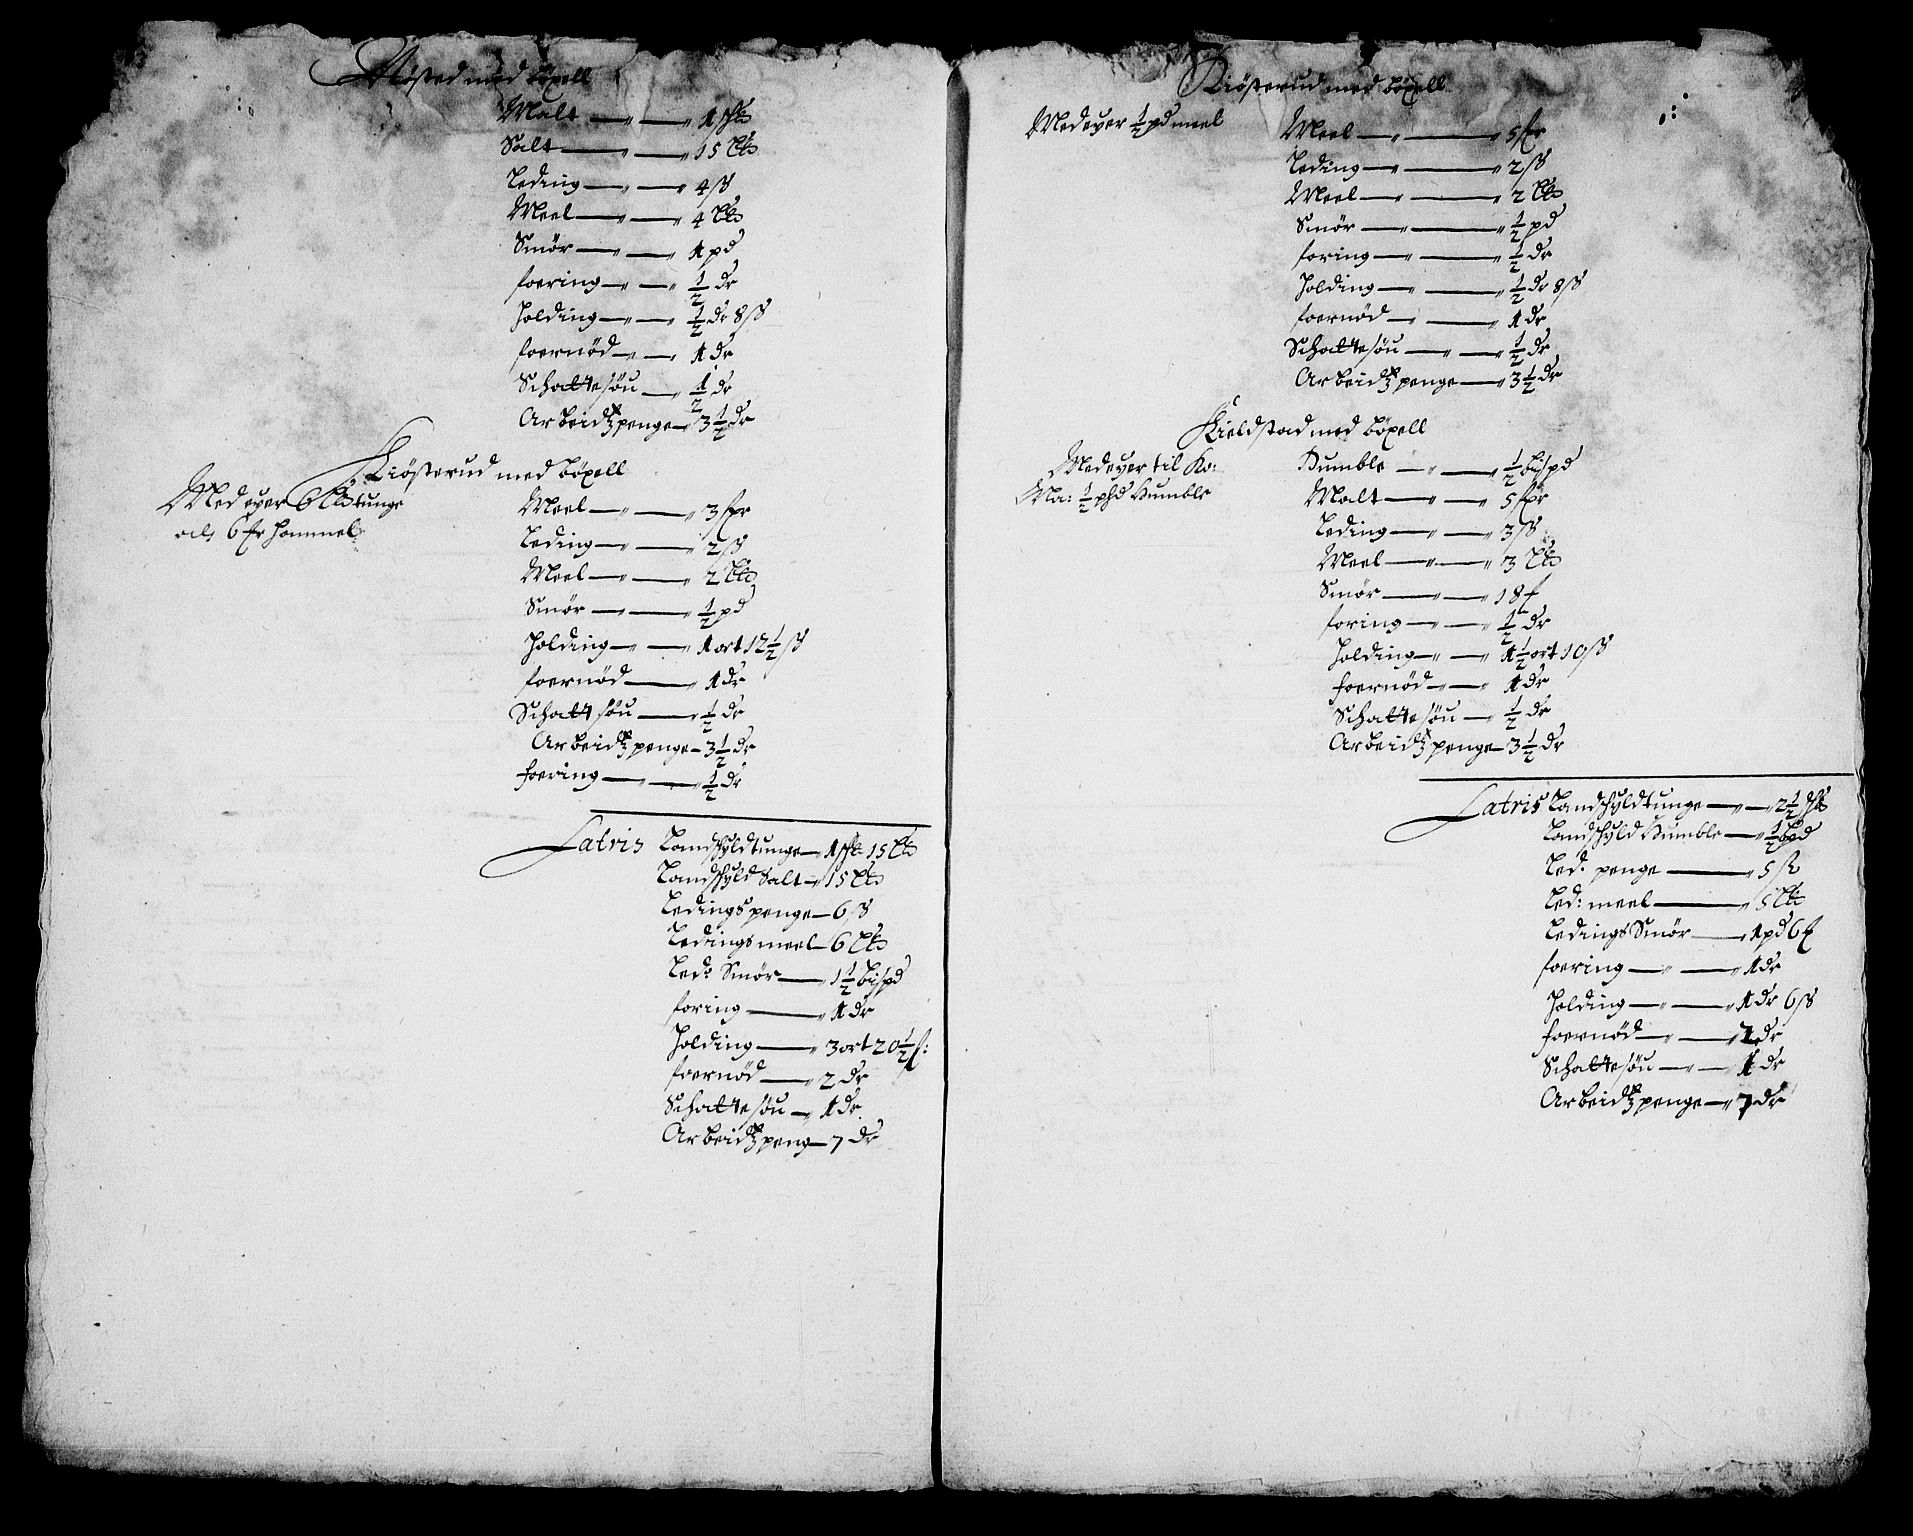 Røsted med bøxell
Malt — 1 schll
Salt — 15 lld
Leding — 4 ß
Meel — 4 lld
Smør — 1 pd
foering — ½ dr
Holding — ½ dr 8 ß
foernød — 1 dr
Schattesøu — ½ dr
Arbeidtzpenge — 3½ dr
Kiøsterud med bøxell
Med eyer 6 lld tunge
och 6 fr hommel
Meel — 3 fspr
Leding — 2 ß
Meel — 2 lld
Smør — ½ pd
Holding — 1 ort 12½ ß
foernød — 1 dr
Schatt søu — ½ dr
Arbeidtzpenge — 3½ dr
foering — ½ dr
Latris Landschyldtunge — 1 schll 15 lld
Landschyld Salt — 15 lld
Ledingspenge — 6 ß
Ledingsmeel — 6 lld
Led: Smør — 1½ bispd
foring — 1 dr
Holding — 3 ort 20½ ß:
foernød — 2 dr
Schattesøu — 1 dr
Arbeidtzpeng — 7 dr
Kiøsterud med bøxell
Medeyer ½ pd meel
Meel — 5 fspr
Leding — 2 ß
Meel — 2 lld
Smør — ½ pd
foring — ½ dr
Holding — ½ dr 8 ß
foernød — 1 dr
Schattesøu — ½ dr
Arbeidtzpenge — 3½ dr
Kieldstad med bøxell
Medeyer til Ko:
Ma: ½ phd Humble
Humble — ½ bispd
Malt — 5 fspr
Leding — 3 ß
Meel — 3 lld
Smør — 18 f
foring — ½ dr
Holding — 1½ ort 10 ß
foernød — 1 dr
Schattesøu — ½ dr
Arbeidtzpenge — 3½ dr
Latris Landschyldtunge — 2½ schll
Landschyld Humble — ½ bpd
Led: penge — 5 ß
Led: meel — 5 lld
Ledings Smør — 1 pd 6 f
foering — 1 dr
Holding — 1 dr 6 ß
foernød — 2 dr
Schattesøu — 1 dr
Arbeidtzpenge — 7 dr